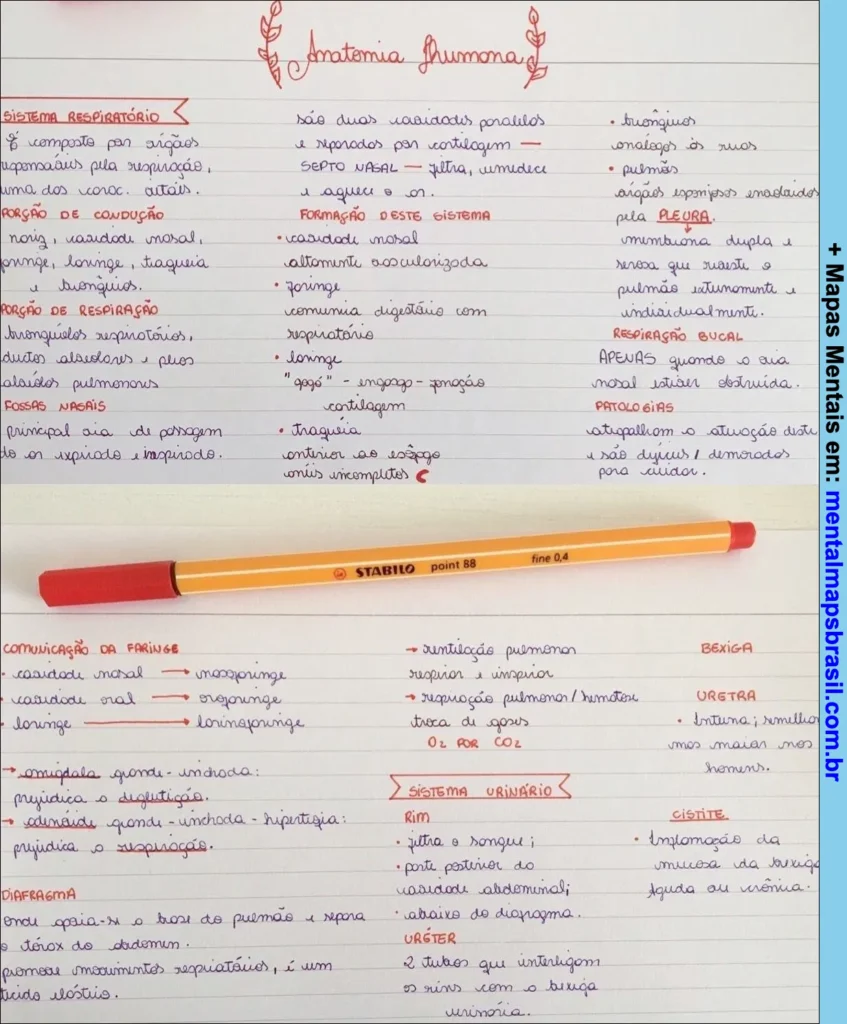 Anatomia Humana
SISTEMA RESPIRATÓRIO
É composto por órgãos
responsáveis pela respiração,
uma dos carac. vitais.
PORÇÃO DE CONDUÇÃO
nariz, cavidade nasal,
faringe, laringe, traqueia
e bronquios.
PORÇÃO DE RESPIRAÇÃO
bronquiolos respiratórios,
ductos alveolares e
alveolos pulmonares
FOSSAS NASAIS
principal via de passagem
do ar expirado e inspirado.
são duas cavidades paralelas
e separadas por cartilagem —
SEPTO NASAL — filtra, umedece
e aquece o ar.
FORMAÇÃO DESTE SISTEMA
• cavidade nasal
altamente vascularizada
• faringe
comunica digestório com
respiratório
• laringe
"gogó" - engasgo - fonação
cartilagem
• traqueia
anterior ao esôfago
anéis incompletos C
• bronquios
análogos às ruas
• pulmões
órgãos esponjosos envolvidos
pela PLEURA.
membrana dupla e
serosa que reveste o
pulmão externamente e
individualmente.
RESPIRAÇÃO BUCAL
APENAS quando a via
nasal estiver obstruída.
PATOLOGIAS
atrapalham a atuação deste
e são difíceis / demorados
para cuidar.
STABILO point 88 fine 0,4
COMUNICAÇÃO DA FARINGE
• cavidade nasal → nasofaringe
• cavidade oral → orofaringe
• laringe → laringofaringe
→ amígdala grande - inchada:
prejudica a deglutição.
→ adenóide grande - inchada - hipertrofia:
prejudica a respiração.
DIAFRAGMA
onde apoia-se a base do pulmão e separa
o tórax do abdomen.
promove movimentos respiratórios, é um
tecido elástico.
→ ventilação pulmonar
respirar e inspirar
→ respiração pulmonar / hematose
troca de gases
O2 POR CO2
SISTEMA URINÁRIO
RIM
• filtra o sangue;
• parte posterior da
cavidade abdominal;
• abaixo do diafragma.
URÉTER
2 tubos que interligam
os rins com a bexiga
urinária.
BEXIGA
URETRA
• Interna; semelha
mas maior nos
homens.
CISTITE
• Inflamação da
mucosa da bexiga
Aguda ou crônica.
+ Mapas Mentais em: mentalmapsbrasil.com.br